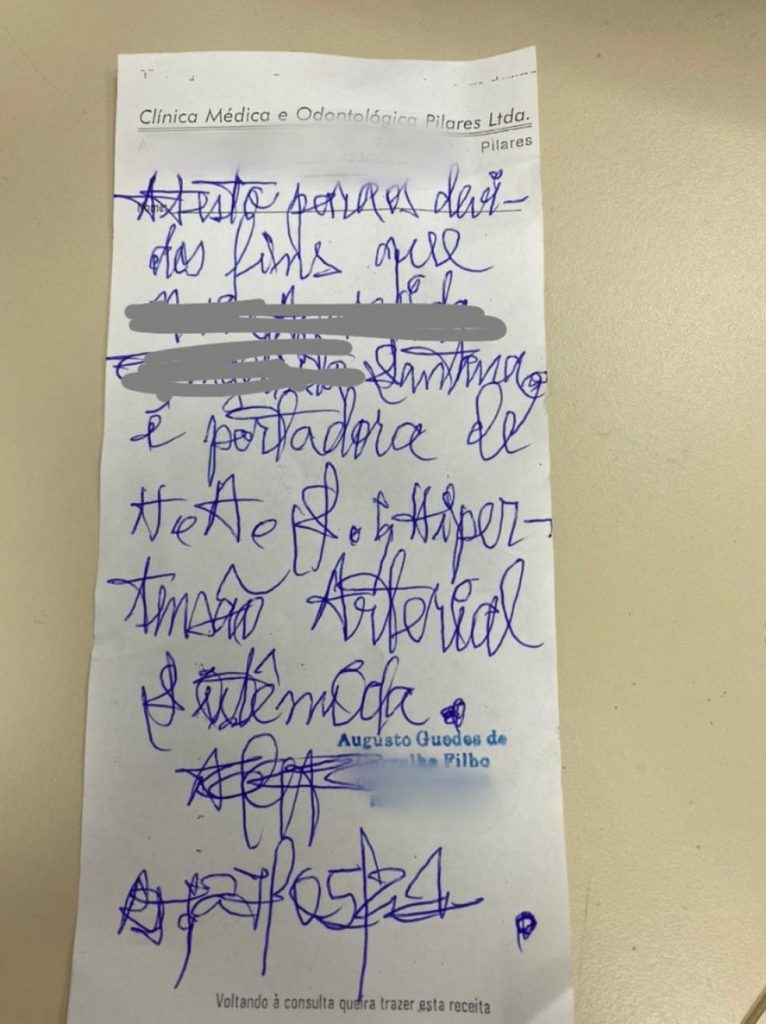 Clínica Médica e Odontológica Pilares Ltda.
Pilares
Atesto para os devi-
dos fins que
Santana,
é portadora de
H.A.S. Hiper-
tensão Arterial
Sistêmica.
Augusto Guedes de
Carvalho Filho
27/05/21
Voltando à consulta queira trazer esta receita